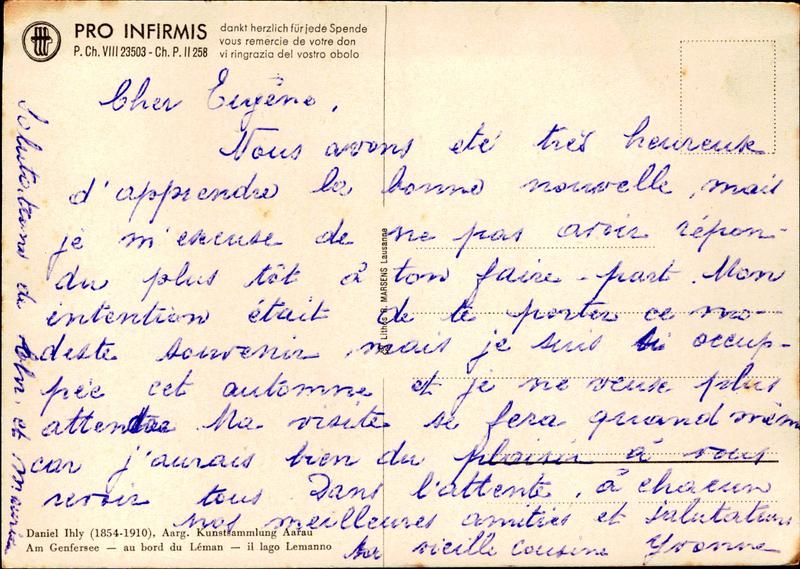 PRO INFIRMIS
P. Ch. VIII 23503 - Ch. P. II 258
dankt herzlich für jede Spende
vous remercie de votre don
vi ringrazia del vostro obolo
Cher Eugène,
Nous avons été très heureux
d'apprendre la bonne nouvelle, mais
je m'excuse de ne pas avoir répon-
du plus tôt à ton faire-part. Mon
intention était de te porter ce mo-
deste souvenir, mais je suis si occup-
pée cet automne et je ne veux plus
attendre. Ma visite se fera quand même
car j'aurais bien du plaisir à vous
revoir tous. Dans l'attente, à chacun
nos meilleures amitiés et salutations
ta vieille cousine Yvonne
Salutations de et Maurice
Lithos R. MARSENS Lausanne
Daniel Ihly (1854-1910), Aarg. Kunstsammlung Aarau
Am Genfersee — au bord du Léman — il lago Lemanno